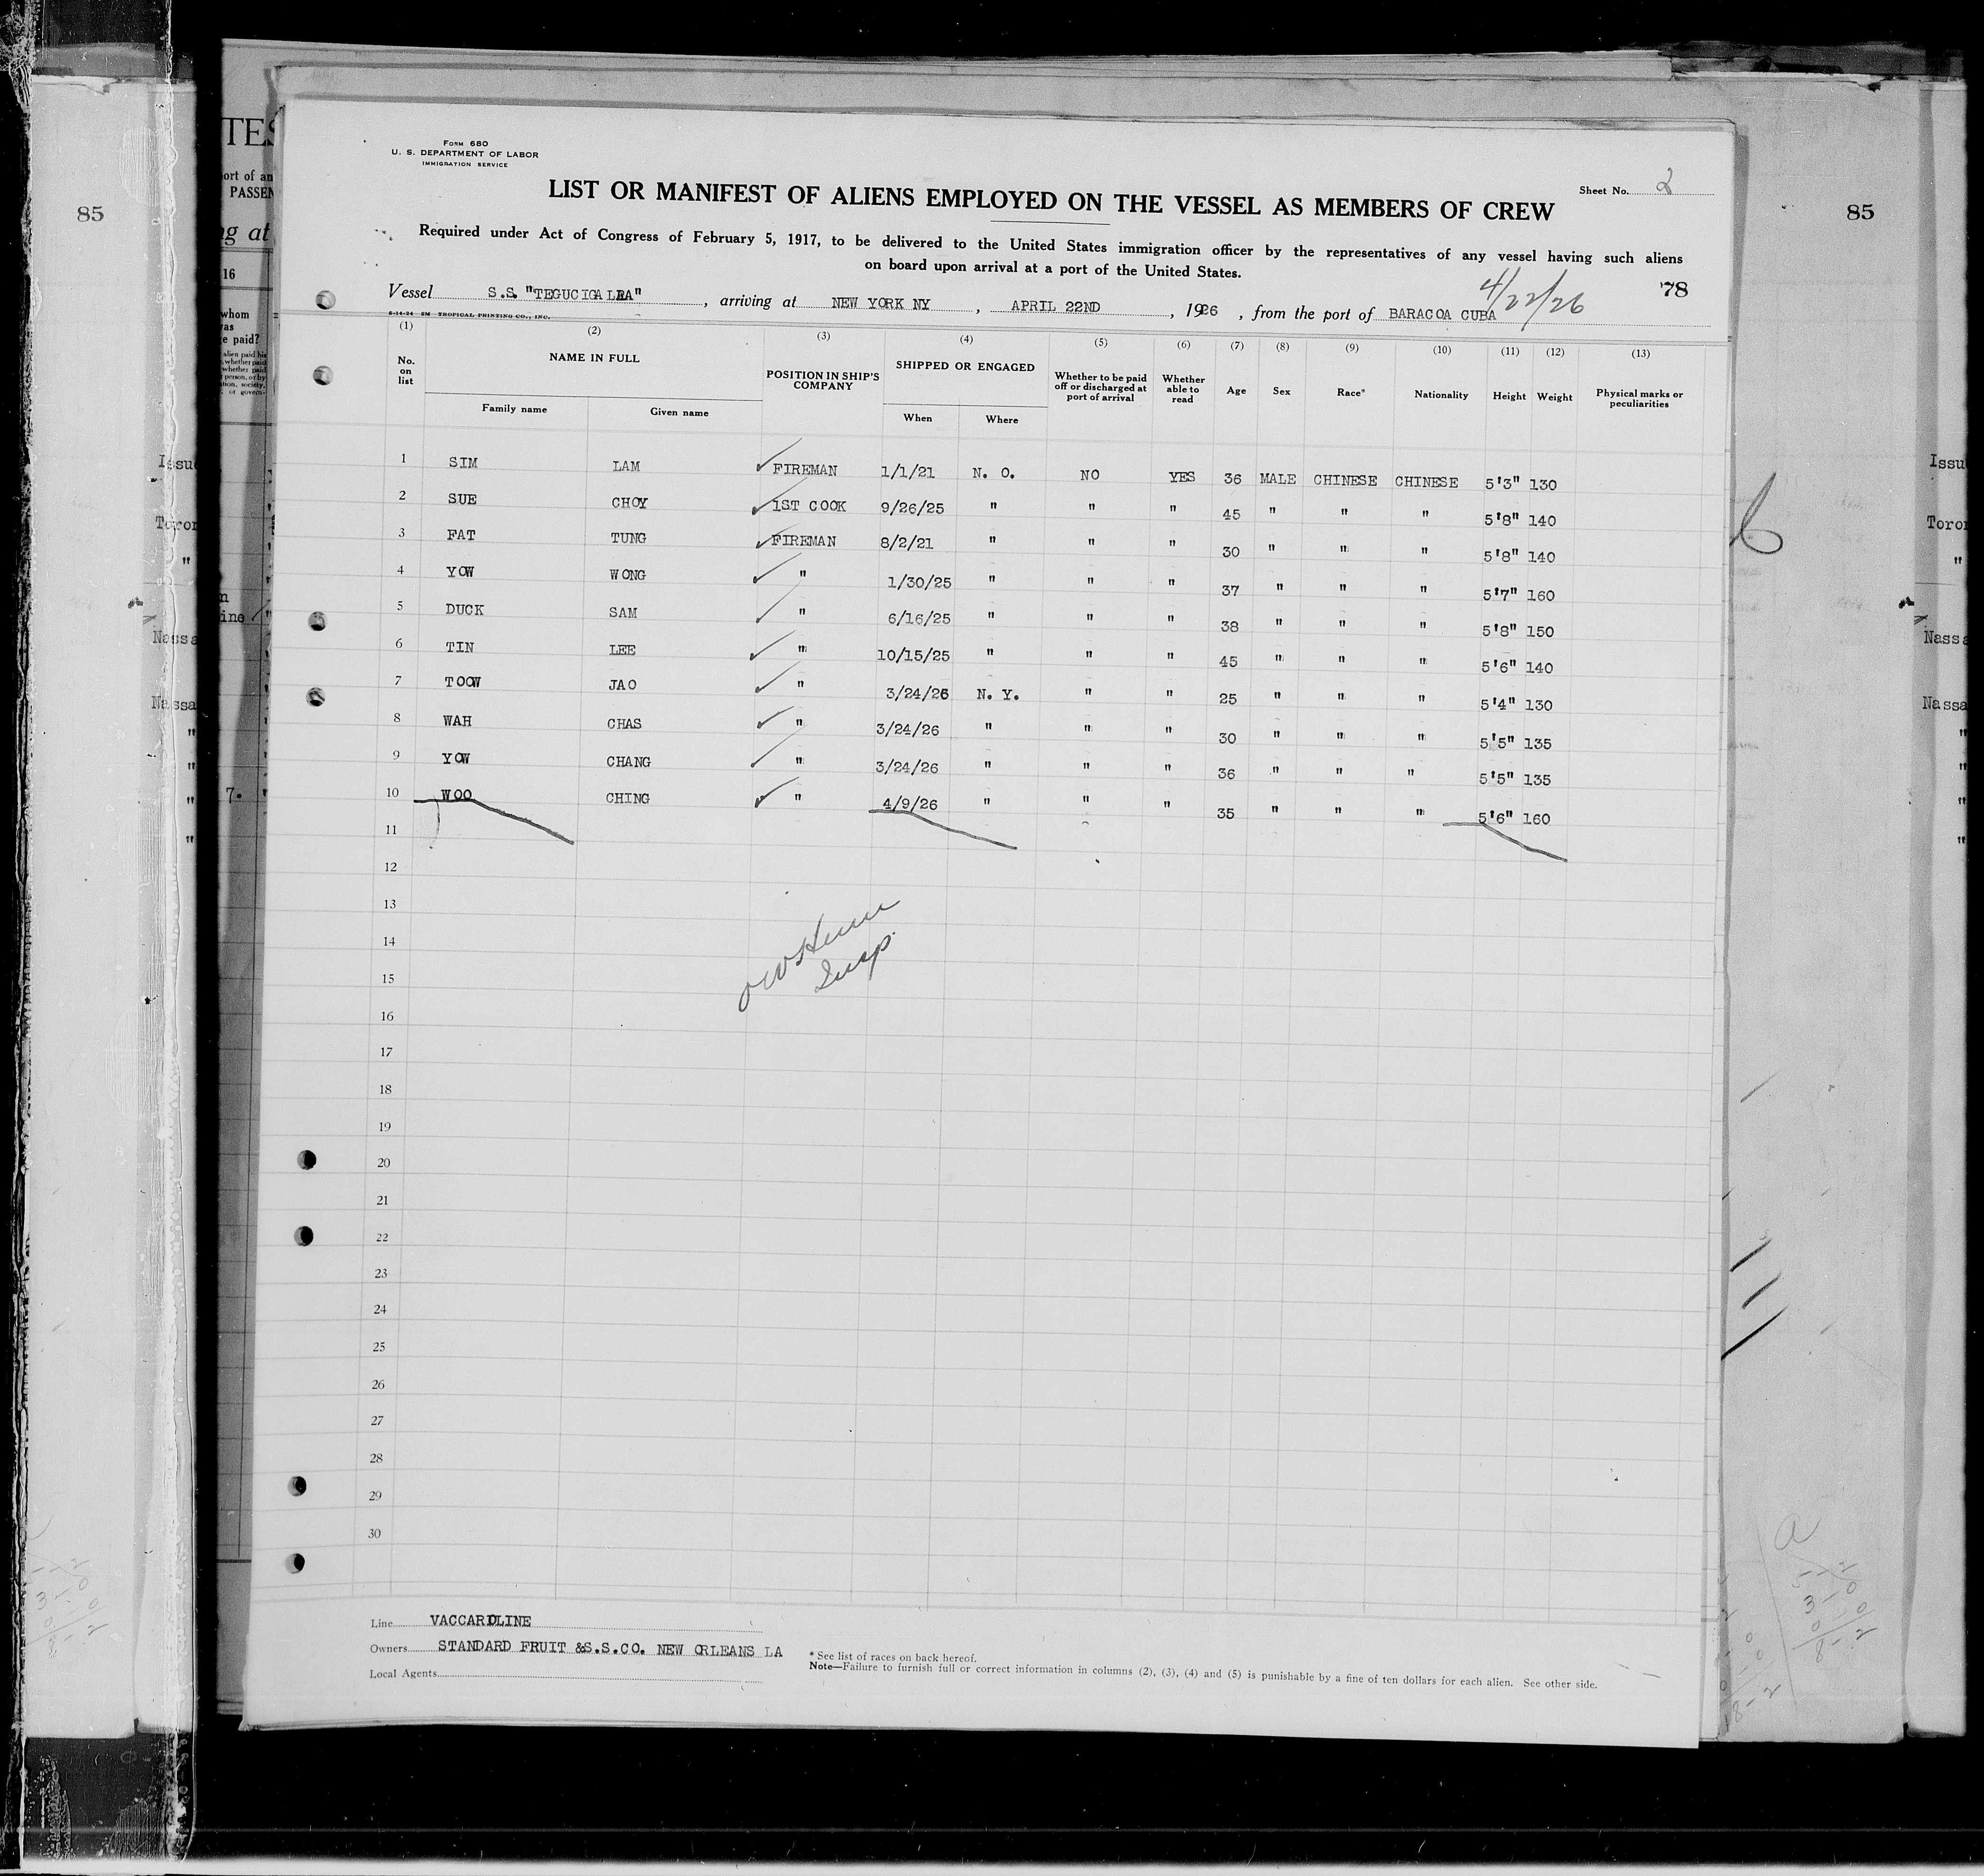 Form 680
U. S. DEPARTMENT OF LABOR
IMMIGRATION SERVICE
Sheet No. 2
LIST OR MANIFEST OF ALIENS EMPLOYED ON THE VESSEL AS MEMBERS OF CREW
Required under Act of Congress of February 5, 1917, to be delivered to the United States immigration officer by the representatives of any vessel having such aliens
on board upon arrival at a port of the United States.
4/22/26
78
Vessel S.S. "TEGUCIGALRA", arriving at NEW YORK NY, APRIL 22ND, 1926, from the port of BARACOA CUBA
5-14-24 5M TROPICAL PRINTING CO., INC.
(1) (2) (3) (4) (5) (6) (7) (8) (9) (10) (11) (12) (13)
No. on list NAME IN FULL POSITION IN SHIP'S COMPANY SHIPPED OR ENGAGED Whether to be paid off or discharged at port of arrival Whether able to read Age Sex Race* Nationality Height Weight Physical marks or peculiarities
Family name Given name When Where
1 SIM LAM FIREMAN 1/1/21 N. O. NO YES 36 MALE CHINESE CHINESE 5'3" 130
2 SUE CHOY 1ST COOK 9/26/25 " " " 45 " " " 5'8" 140
3 FAT TUNG FIREMAN 8/2/21 " " " 30 " " " 5'8" 140
4 YOW WONG " 1/30/25 " " " 37 " " " 5'7" 160
5 DUCK SAM " 6/16/25 " " " 38 " " " 5'8" 150
6 TIN LEE " 10/15/25 " " " 45 " " " 5'6" 140
7 TOOW JAO " 3/24/26 N. Y. " " 25 " " " 5'4" 130
8 WAH CHAS " 3/24/26 " " " 30 " " " 5'5" 135
9 YOW CHANG " 3/24/26 " " " 36 " " " 5'5" 135
10 WOO CHING " 4/9/26 " " " 35 " " " 5'6" 160
11
12
13
14
Insp.
15
16
17
18
19
20
21
22
23
24
25
26
27
28
29
30
Line VACCAROLINE
Owners STANDARD FRUIT &S.S.CO. NEW ORLEANS LA
Local Agents
* See list of races on back hereof.
Note—Failure to furnish full or correct information in columns (2), (3), (4) and (5) is punishable by a fine of ten dollars for each alien. See other side.
85
85